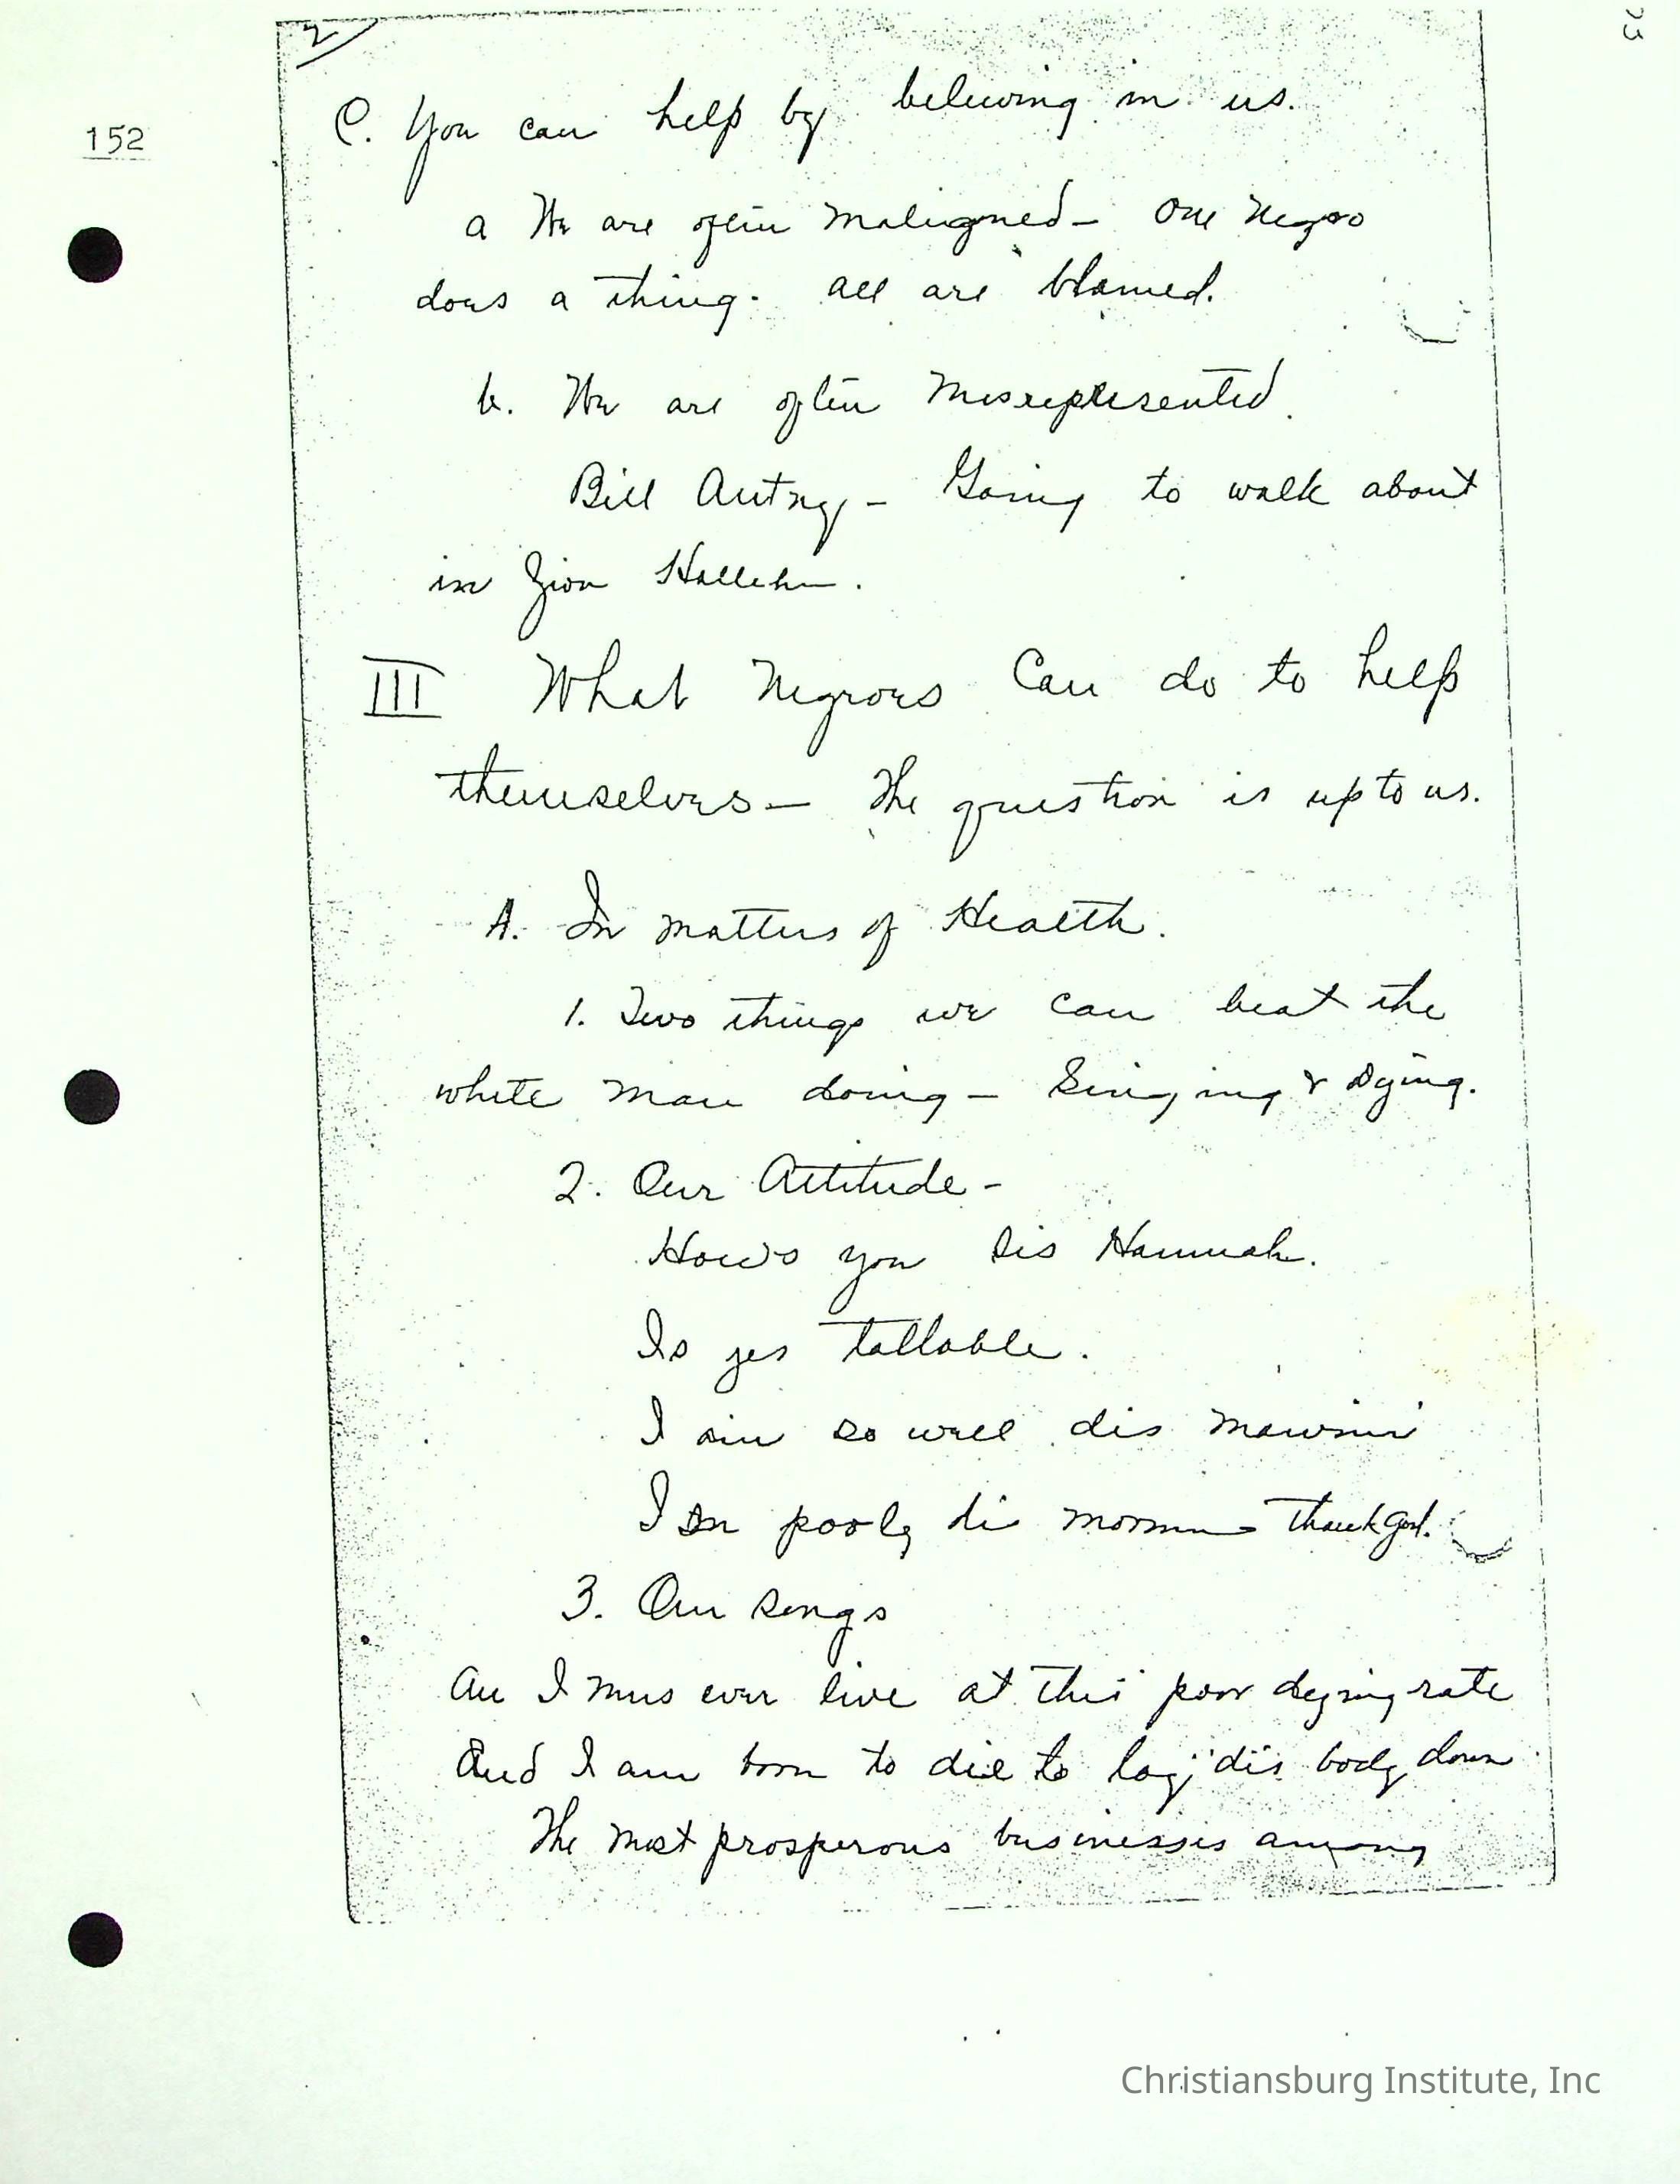 2
23
152
C. You can help by believing in us.
a We are often maligned - One Negro
does a thing. all are blamed.
b. We are often misrepresented.
Bill Autry - Going to walk about
in Zion Halleh.
III What Negroes Can do to help
themselves - The question is up to us.
A. In matters of Health.
1. Two things we can beat the
white man doing - Singing & Dying.
2. Our Attitude -
How's you Sis Hannah.
Is jes tollable.
I ain so well dis mawnin'
I pooly dis mornin thank God.
3. Our songs
An I mus ever live at this poor dying rate
And I am born to die to lay dis body down
The most prosperous businesses among
Christiansburg Institute, Inc